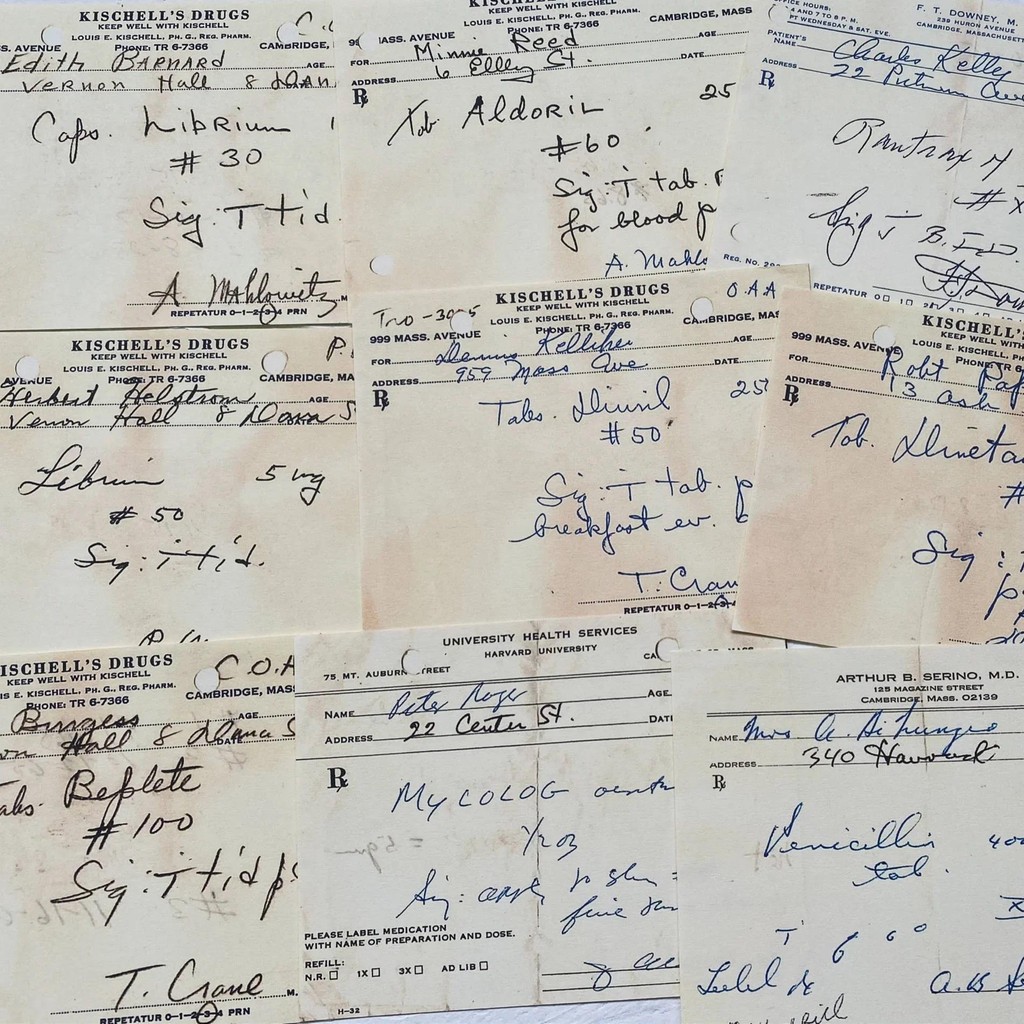 KISCHELL'S DRUGS
KEEP WELL WITH KISCHELL
LOUIS E. KISCHELL, PH. G., REG. PHARM.
SS. AVENUE PHONE: TR 6-7366 CAMBRIDGE,
Edith BARNARD AGE
Vernon Hall 8 DANA
Caps. Librium
# 30
Sig: T tid.
A. Mahlowitz M
REPETATUR 0-1-2-3-4 PRN
KISCHELL'S DRUGS
KEEP WELL WITH KISCHELL
LOUIS E. KISCHELL, PH. G., REG. PHARM.
PHONE: TR 6-7366 CAMBRIDGE, MASS
FOR Minnie Reed AGE
ADDRESS 6 Ellery St. DATE
℞
Tab. Aldoril 25
#60
Sig: T tab.
for blood p
A. Mahlo
OFFICE HOURS:
4 AND 7 TO 8 P. M.
PT WEDNESDAY & SAT. EVE.
F. T. DOWNEY, M.
239 HURON AVENUE
CAMBRIDGE, MASSACHUSETT
PATIENT'S NAME Charles Kelley
ADDRESS 22 Putnam Ave
℞
Rautrax N
#
Sig T B.I.D.
REG. NO.
REPETATUR
KISCHELL'S DRUGS
KEEP WELL WITH KISCHELL
LOUIS E. KISCHELL, PH. G., REG. PHARM.
AVENUE PHONE: TR 6-7366 CAMBRIDGE, MA
Herbert Holstrom AGE
Vernon Hall 8 Dana S
Librium 5 mg
# 50
Sig: T tid.
O.A.A
KISCHELL'S DRUGS
KEEP WELL WITH KISCHELL
LOUIS E. KISCHELL, PH. G., REG. PHARM.
999 MASS. AVENUE PHONE: TR 6-7366 CAMBRIDGE, MASS.
FOR Dennis Kelliher AGE
ADDRESS 959 Mass Ave DATE
℞
Tabs. Diuril 25
# 50
Sig: T tab. p
breakfast ev.
T. Cran
REPETATUR 0-1-2-3-4
KISCHELL'S
KEEP WELL WITH
LOUIS E. KISCHELL,
999 MASS. AVENUE PHONE:
FOR Robt
ADDRESS 13 Ash
℞
Tab. Dimeta
#
Sig :
KISCHELL'S DRUGS
KEEP WELL WITH KISCHELL
IS E. KISCHELL, PH. G., REG. PHARM.
PHONE: TR 6-7366 CAMBRIDGE, MAS
Burgess AGE
on Hall 8 Dana S
DATE
abs. Beplete
# 100
Sig: T tid p
T. Crane M.
REPETATUR 0-1-2-3-4 PRN
UNIVERSITY HEALTH SERVICES
HARVARD UNIVERSITY
75 MT. AUBURN STREET CA
NAME Peter Roger AGE
ADDRESS 22 Center St. DATE
℞
Mycolog
½ oz
Sig:
PLEASE LABEL MEDICATION
WITH NAME OF PREPARATION AND DOSE.
REFILL:
N.R. 1X 3X AD LIB
H-32
ARTHUR B. SERINO, M.D.
125 MAGAZINE STREET
CAMBRIDGE, MASS. 02139
NAME Mrs A.
ADDRESS 340
℞
Penicillin 400
tab.
T 6
Label
A. B. Se